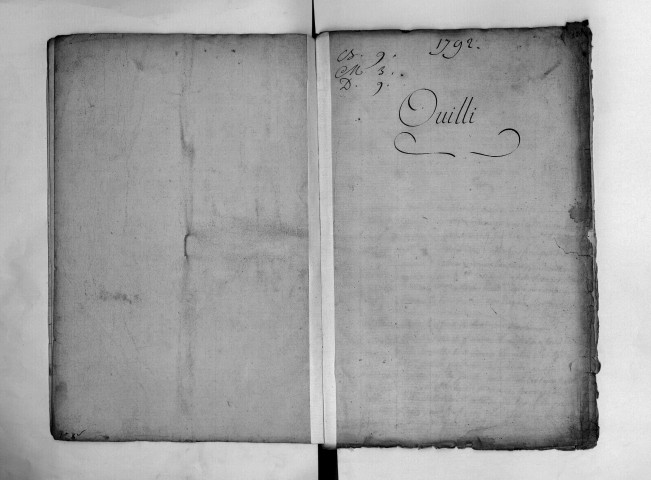 1792.
B. 9.
M 3.
D. 9.
Ouilli